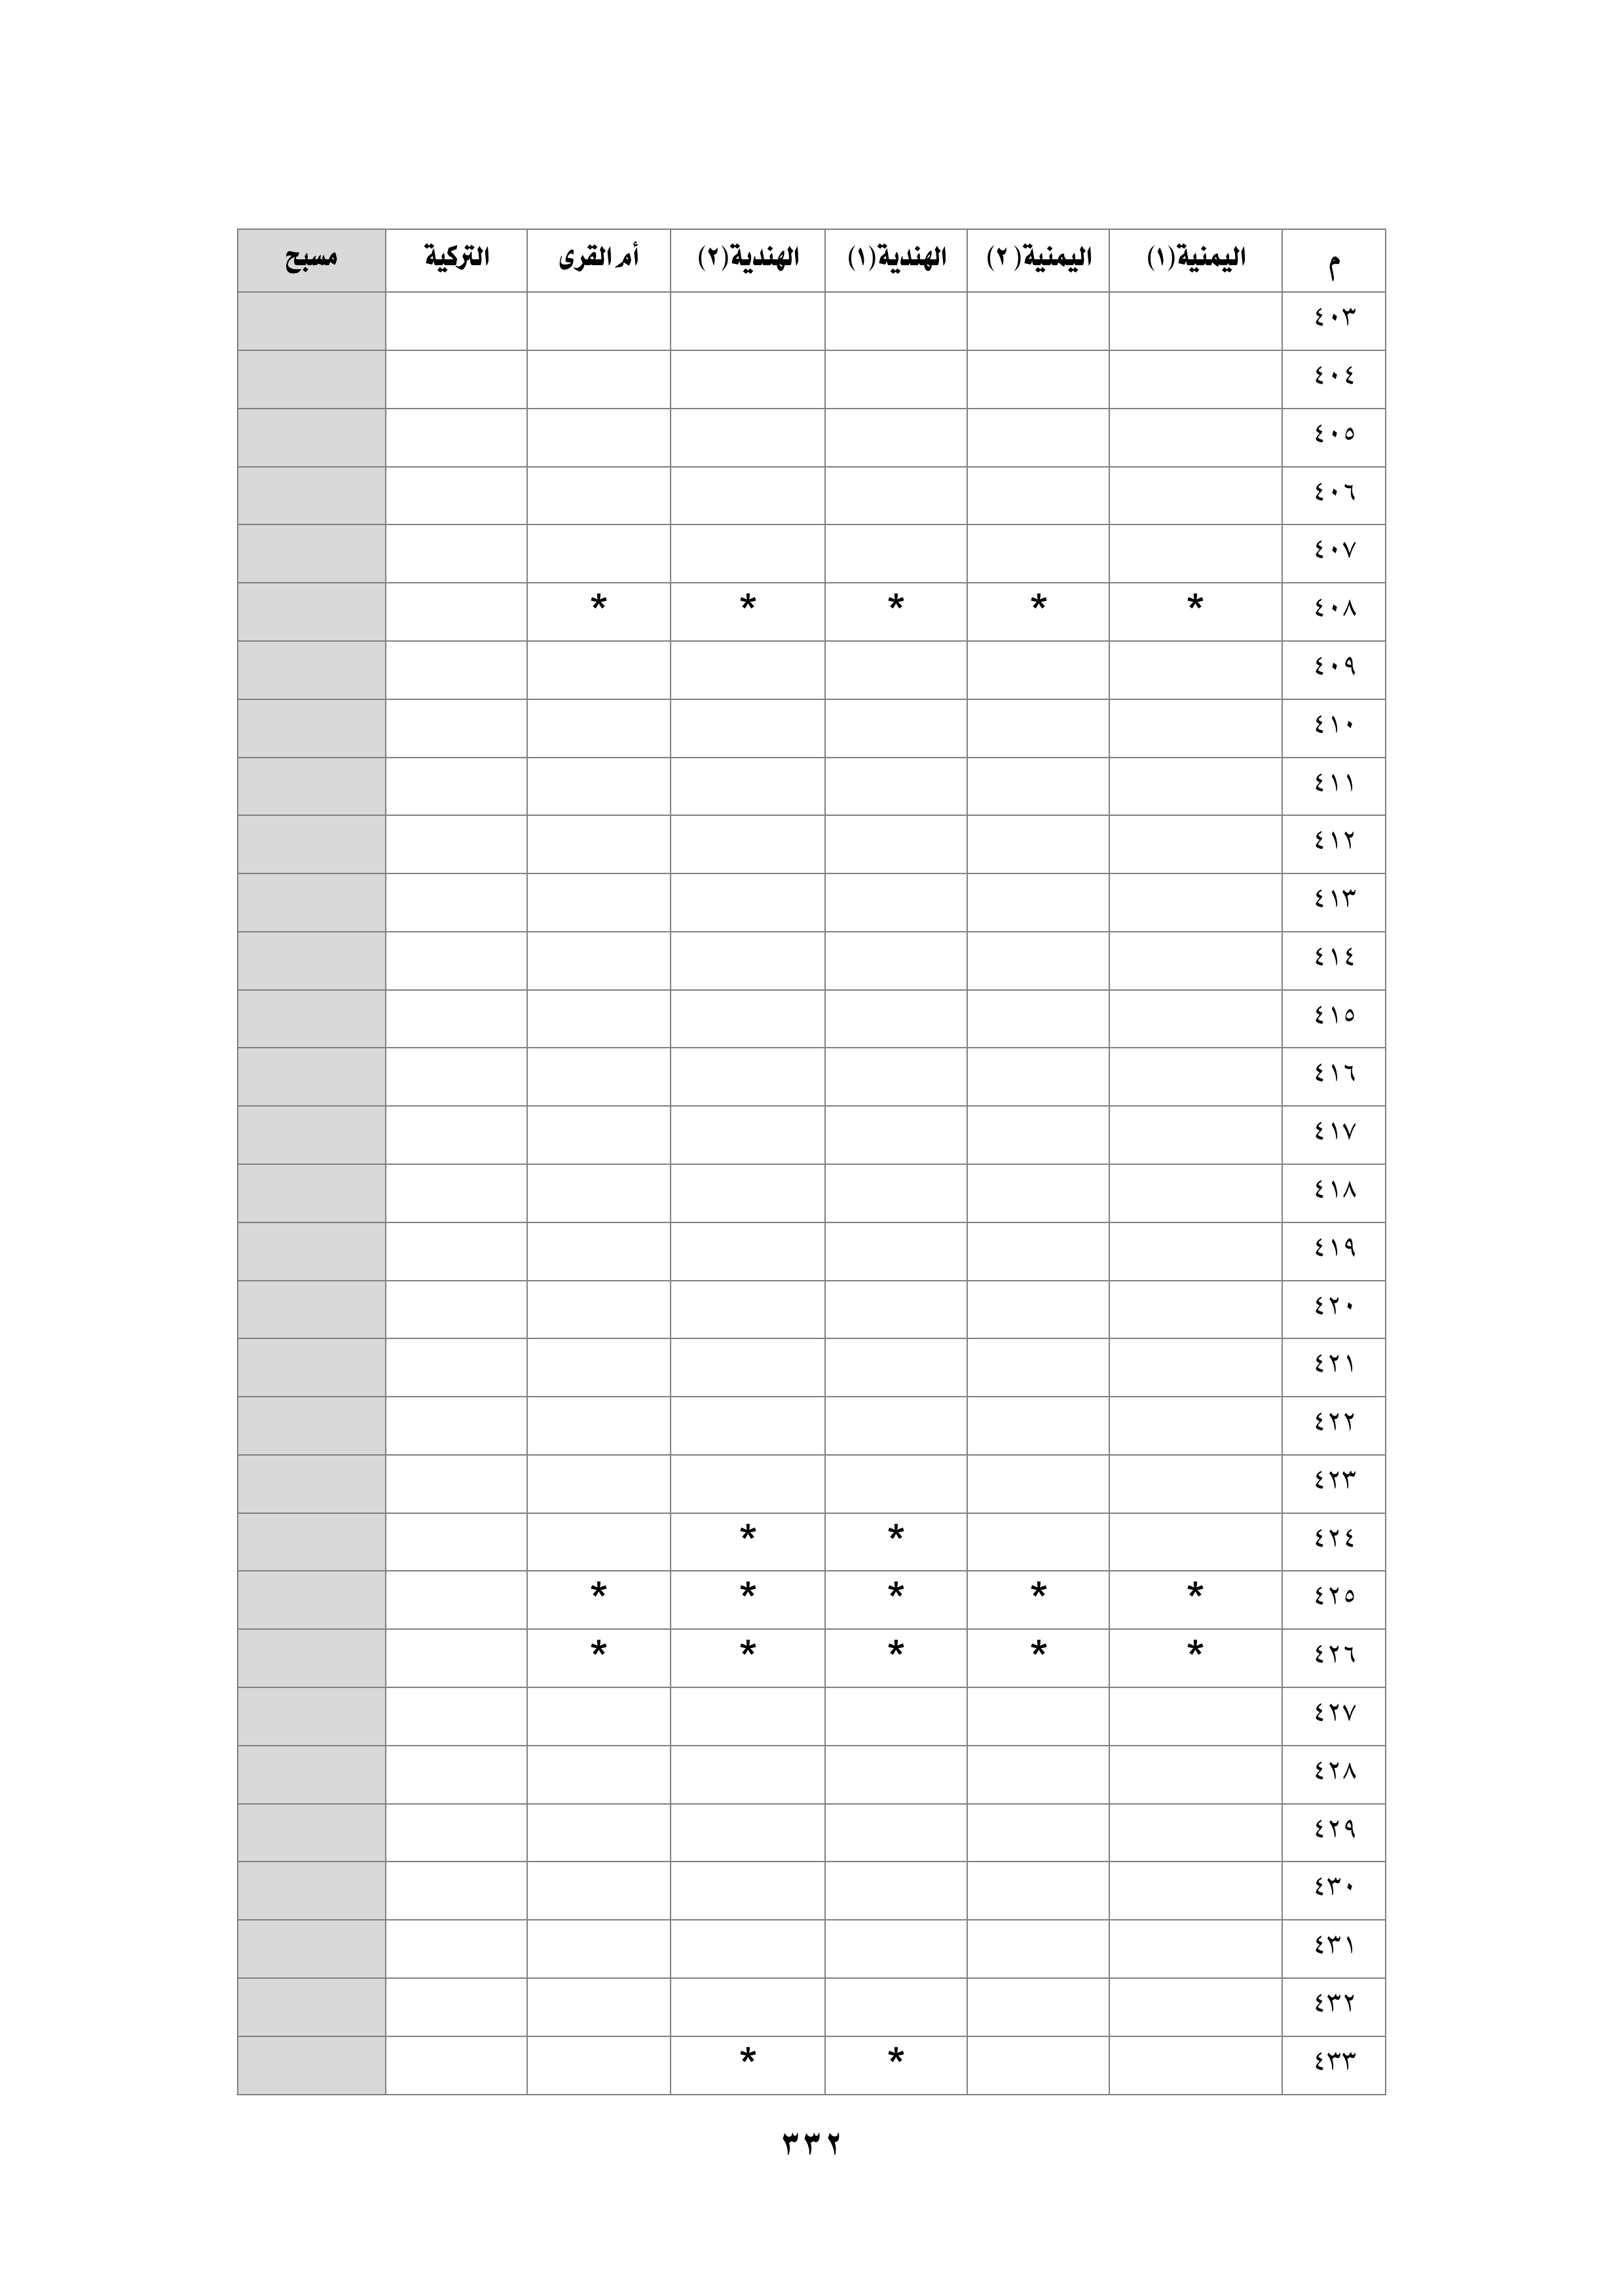 م اليمنية(١) اليمنية(٢) الهندية(١) الهندية(٢) أم القرى التركية مسبح
٤٠٣
٤٠٤
٤٠٥
٤٠٦
٤٠٧
٤٠٨ * * * * *
٤٠٩
٤١٠
٤١١
٤١٢
٤١٣
٤١٤
٤١٥
٤١٦
٤١٧
٤١٨
٤١٩
٤٢٠
٤٢١
٤٢٢
٤٢٣
٤٢٤ * *
٤٢٥ * * * * *
٤٢٦ * * * * *
٤٢٧
٤٢٨
٤٢٩
٤٣٠
٤٣١
٤٣٢
٤٣٣ * *
٣٣٢